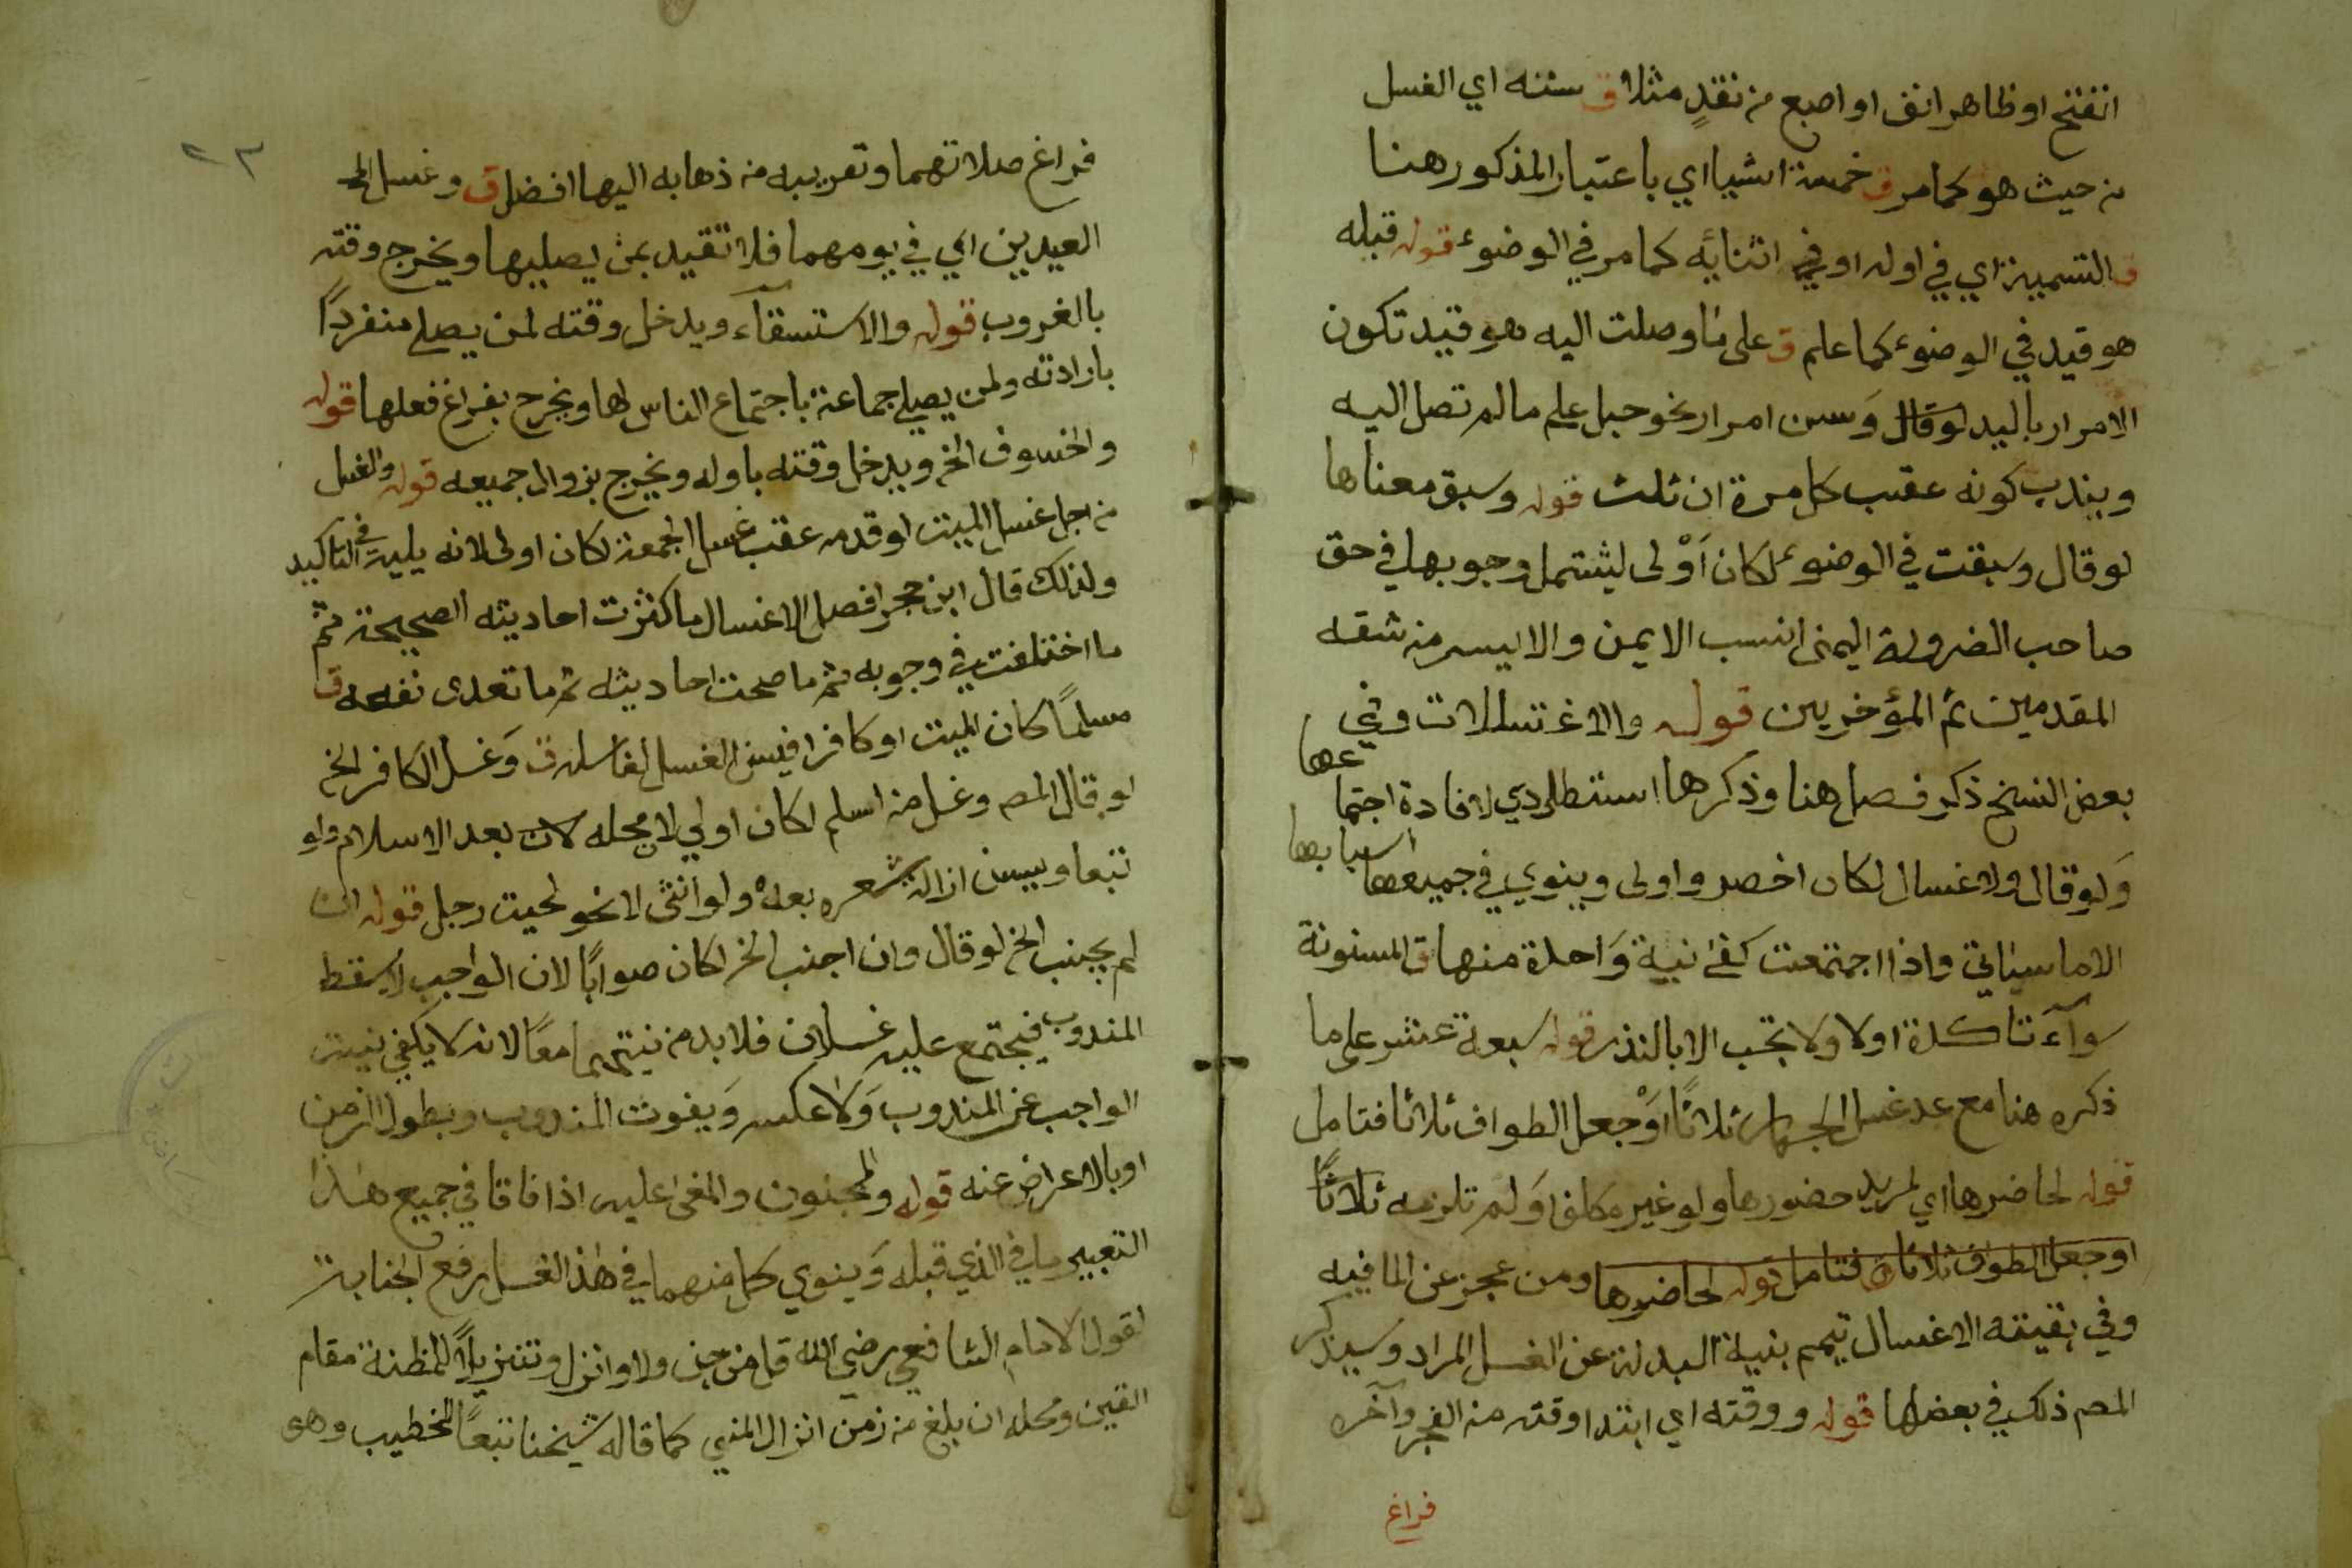 انفتح او ظاهر انف او اصبع من نقد مثلا ق سننه اي الغسل
من حيث هو كما مر ق خمسة اشيا اي باعتبار المذكور هنا
ق التسمية اي في اوله او في اثنائه كما مر في الوضوء قوله قبله
هو قيد في الوضوء كما علم ق على ما وصلت اليه هو قيد تكون
الامرار باليد لو قال وسن امرار نحو حبل علم ما لم تصل اليه
ويندب كونه عقب كل مرة ان ثلث قوله وسبق معناها
لو قال وسبقت في الوضوء لكان أولى ليشتمل وجوبها في حق
صاحب الضرورة اليمنى انسب الايمن والايسر من شقه
المقدمين ثم المؤخرين قوله والاغتسالات وفي
بعض النسخ ذكر فصل هنا وذكرها استطرادي لافادة اجتما
عها
ولو قال والاغسال لكان اخصر واولى وينوي في جميعها
اسبابها
الا ما سياتي واذا اجتمعت كفى نية واحدة منها ق المسنونة
سوآء تاكدة اولا ولا تجب الا بالنذر قوله سبعة عشر على ما
ذكره هنا مع عد غسل الجمار ثلاثا او جعل الطواف ثلاثا فتامل
قوله لحاضرها اي لمريد حضورها ولو غير مكلف او لم تلزمه ثلاثا
او جعل الطواف ثلاثا فتامل قوله لحاضرها ومن عجز عن الما فيه
وفي بقيته الاغسال تيمم بنية البدلة عن الغسل المراد وسيذكر
المصم ذلك في بعضها قوله ووقته اي ابتدا وقته من الفجر وآخره
فراغ
٢٣
فراغ صلاتهما وتقريبه من ذهابه اليها افضل ق وغسل الخ
العيدين اي في يومهما فلا تقيد بمن يصليها ويخرج وقته
بالغروب قوله والاستسقآء ويدخل وقته لمن يصلي منفردًا
بارادته ولمن يصلي جماعة باجتماع الناس لها ويخرج بفراغ فعلها قوله
والخسوف الخ ويدخل وقته باوله ويخرج بزوال جميعه قوله والغسل
من اجل غسل الميت لو قدمه عقب غسل الجمعة لكان اولى لانه يليه في التاكيد
ولذلك قال ابن حجر افضل الاغسال ما كثرت احاديثه الصحيحة ثم
ما اختلفت في وجوبه ثم ما صحت احاديثه ثم ما تعدى نفعه ق
مسلمًا كان الميت او كافرا فيسن الغسل لغاسله ق وغسل الكافر الخ
لو قال المصم وغسل من اسلم لكان اولي لان محله لان بعد الاسلام ولو
تبعا ويسن ازالة شعره بعده ولو أنثى لا نحو لحيت رجل قوله ان
لم يجنب الخ لو قال وان اجنب الخ لكان صوابًا لان الواجب لا يسقط
المندوب فيجتمع عليه غسلان فلا بد من نيتهما معًا لانه لا يكفي نيت
الواجب عن المندوب ولا عكسه ويفوت المندوب وبطول الزمن
او بالاعراض عنه قوله والمجنون والمغمى عليه اذا فاقا في جميع هذا
التعبير ما في الذي قبله وينوي كل منهما في هذا الغسل رفع الجنابة
لقول الامام الشافعي رضي الله قل من جن ولا وانزل وتنزيلا للمظنة مقام
اليقين ومحله ان بلغ من زمن انزال المني كما قاله شيخنا تبعًا للخطيب وهو